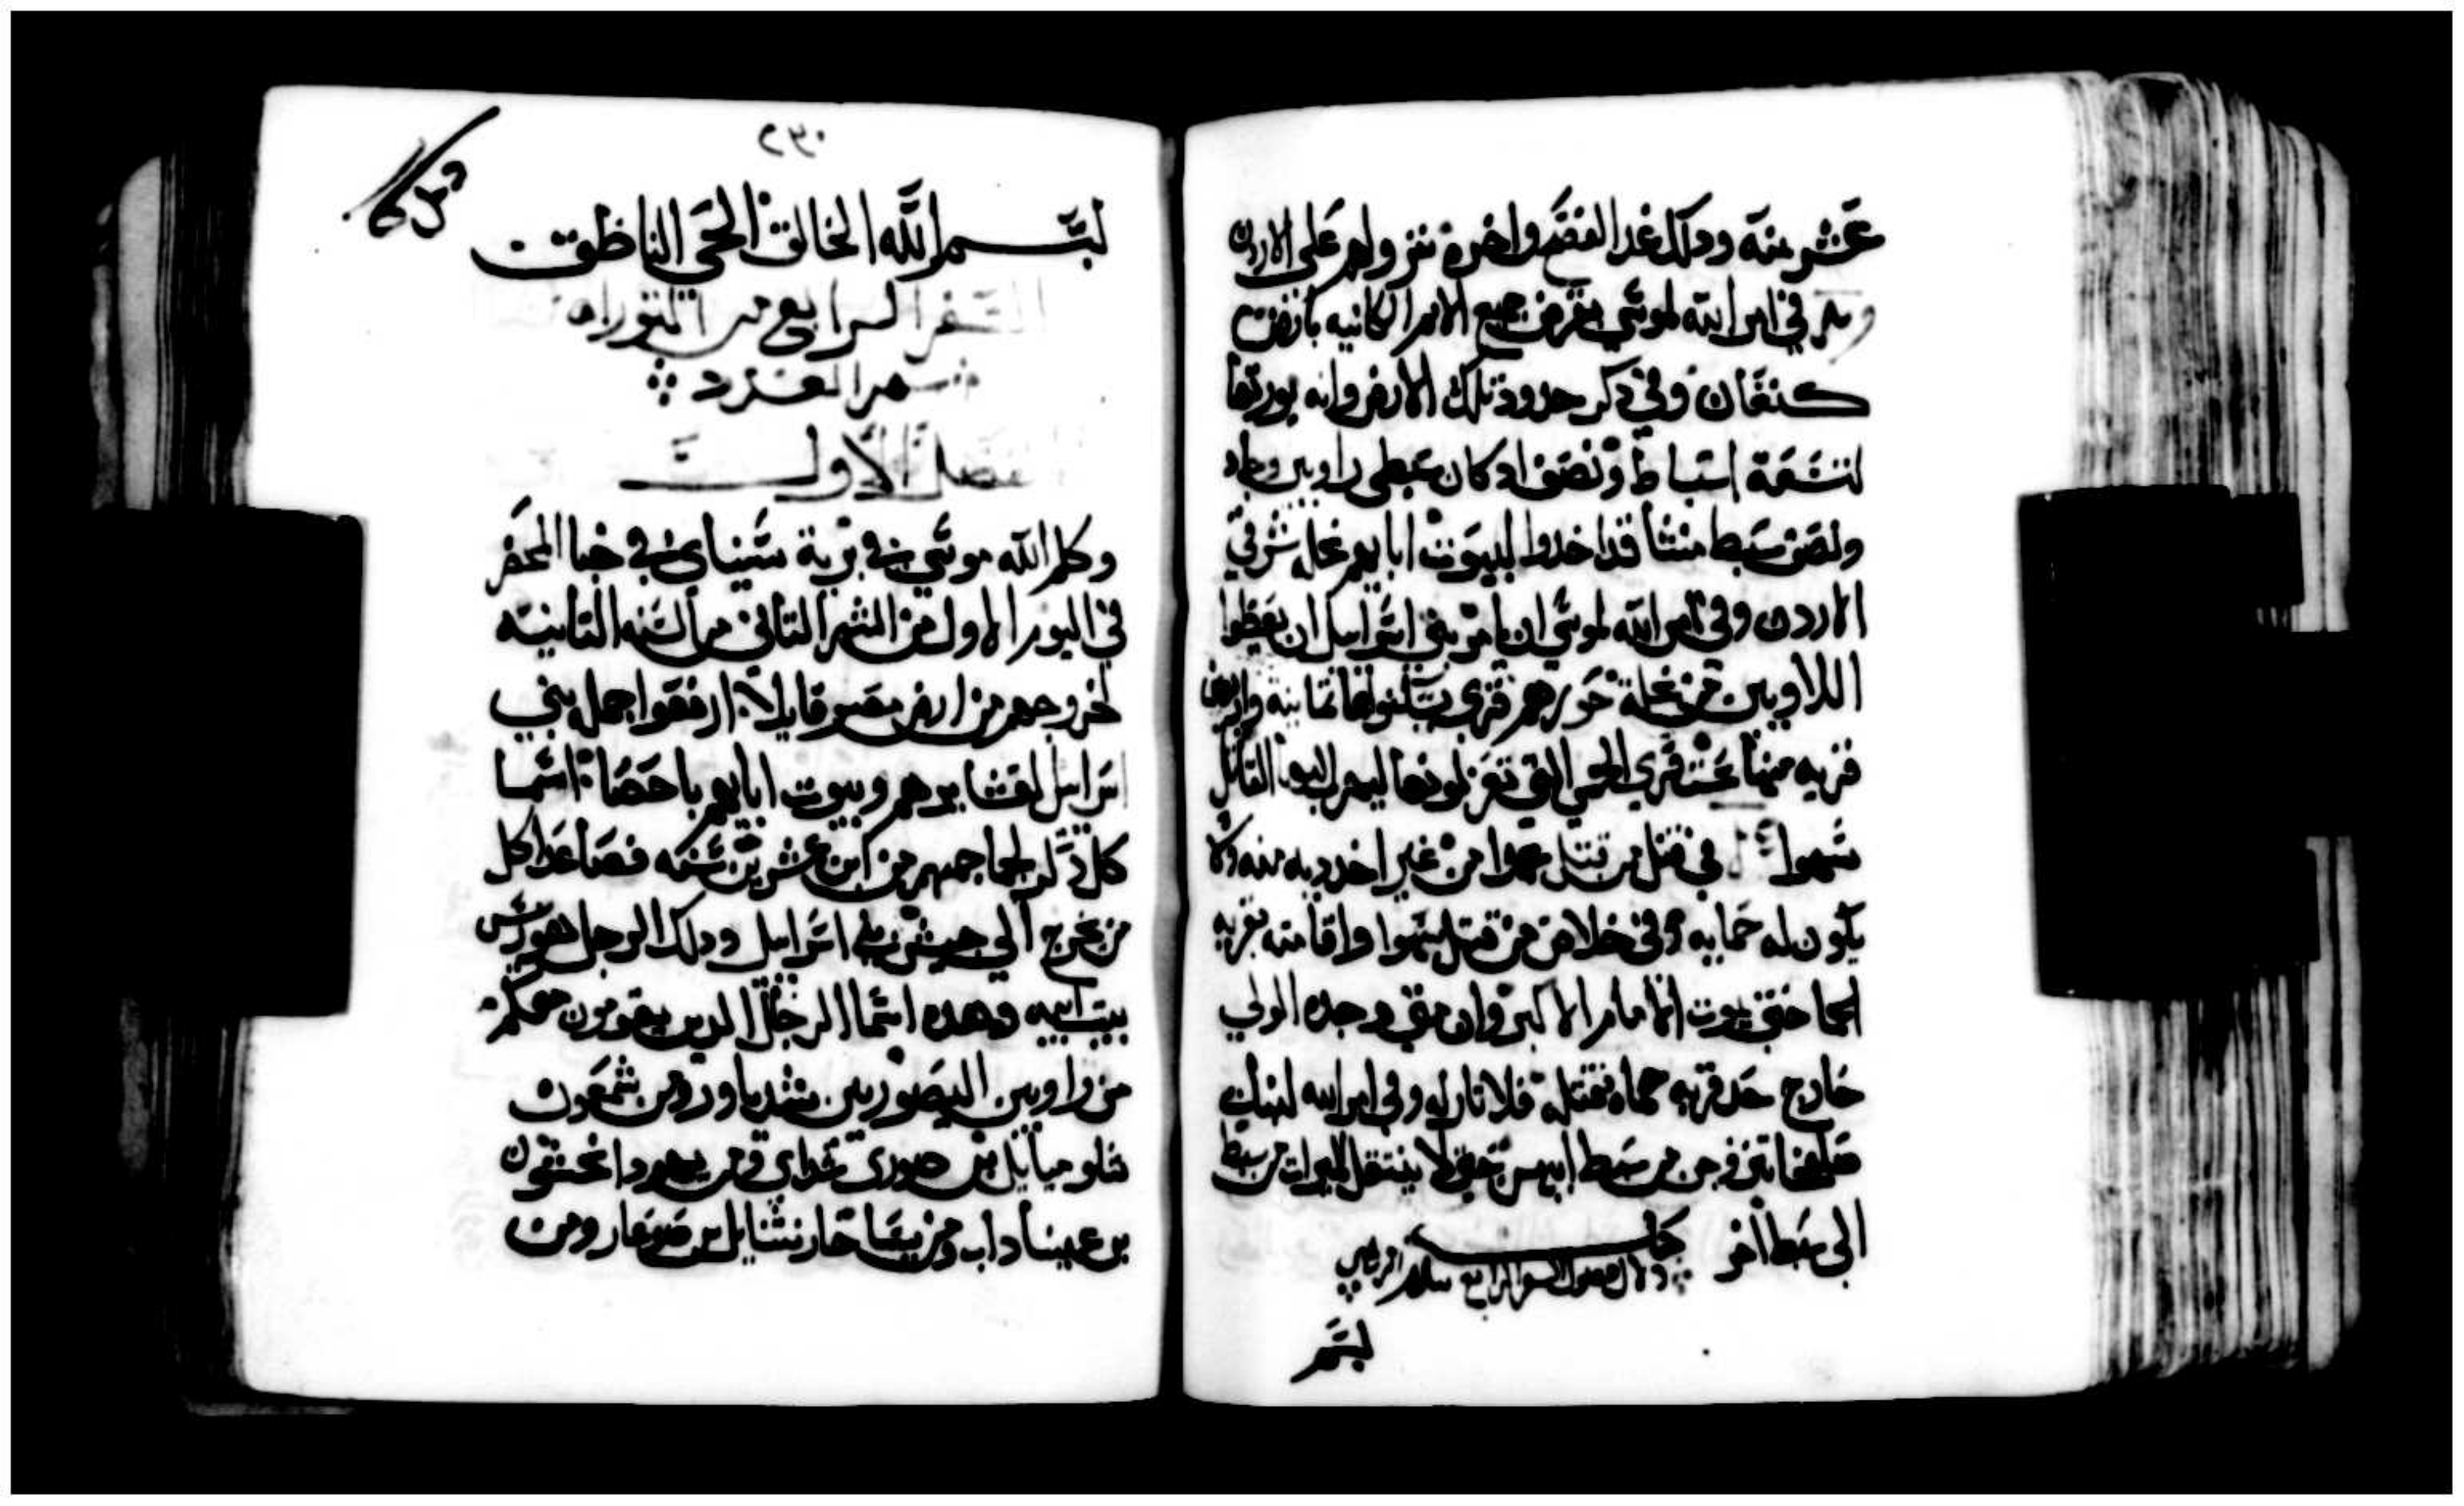 عشر منه وذلك غدا الفصح واخره نزولهم على الاردن
في امر الله لموسي بقرض جميع الامم الكانيه بارض
كنعان وفي ذكر حدود تلك الارض وانه يورتها
لتسعة اسباط ونصف اد كان سبطى راوبين وجاد
ونصف سبط منشا قد اخدوا لبيوت ابايهم نحله شرقي
الاردن وفي امر الله لموسي ان يامر بني اسراييل ان يعطوا
اللاويين من نحلة حوزهم قرى يسكنونها تمانية واربعين
قريه منها ست قري الحمي التي تعزلونها ليهرب اليها القاتل
سهوا في قتل من قتل عمدا من غير اخد ديه منه ولا
يكون له حمايه وفي خلاص من قتل سهوا واقامته بقريه
الحما حتي يموت الامام الاكبر وان متي وجده الولي
خارج حد قريه حماه فقتله فلا تار له وفي امر الله لبنات
صلفحاد يتزوجن من سبط ابيهن حتي لا ينتقل الميرات من سبط
الى سبط اخر
فصول السفر الرابع بسلام من الرب
بسم
٢٣٠
بسم الله الخالق الحي الناطق
السفر الرابع من التوراه
سفر العدد
الفصل الاول
وكلم الله موسي في برية سيناي في خبا المحضر
في اليوم الاول من الشهر التاني من السنه التانيه
لخروجهم من ارض مصر قايلا ارفعوا جمل بني
اسراييل لعشايرهم وبيوت ابايهم باحصا اسما
كل ذكر لجماجمهم من ابن عشرين سنه فصاعدا كل
من يخرج الي جيش في اسراييل ودلك الرجل هو ريس
بيت ابيه وهده اسما الرجال الدين يقومون معكم
من راوبين اليصور بن شدياور ومن شمعون
شلوميايل بن صوري شداي ومن يهودا نحشون
بن عميناداب ومن يساخار نتنايل بن صوغار ومن